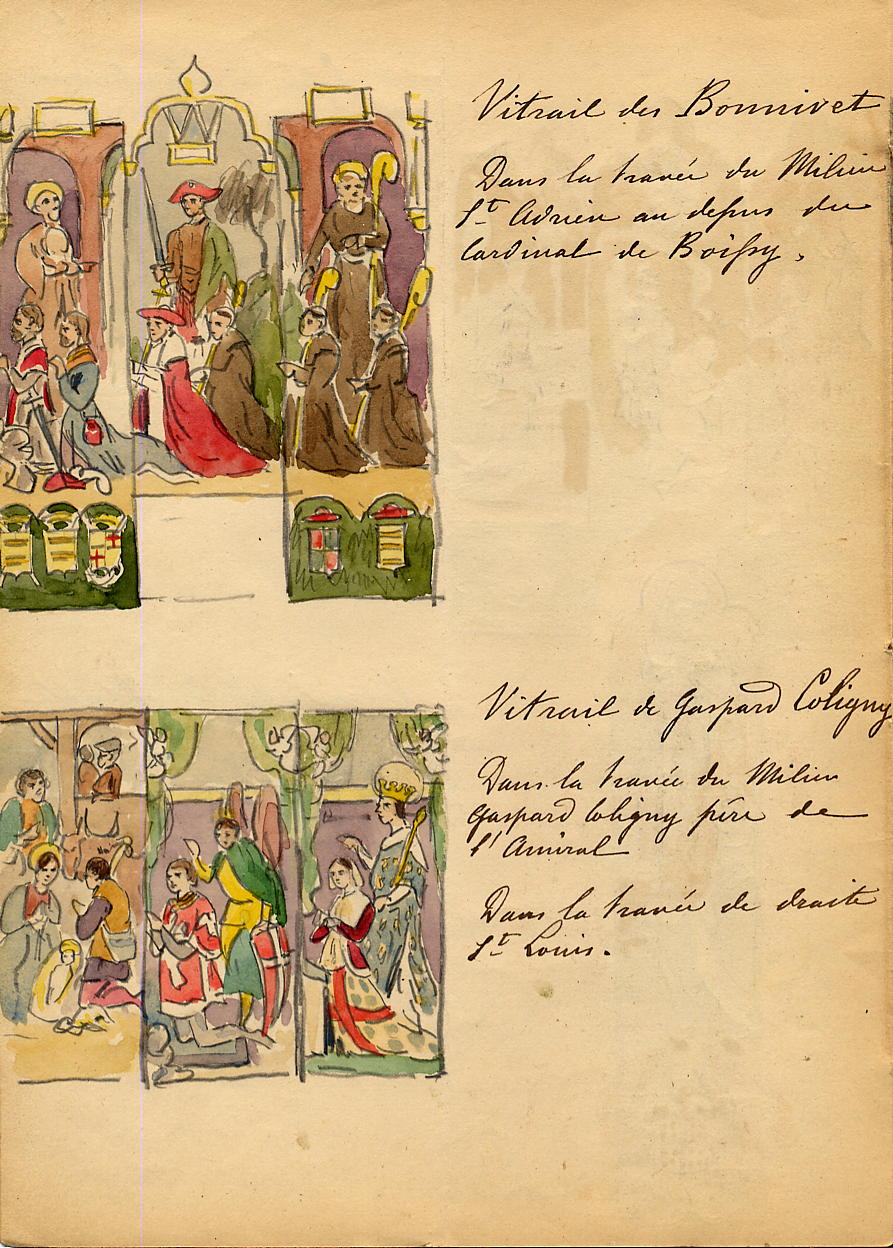 Vitrail des Bonnivet
Dans la travée du Milieu
St Adrien au dessus du
Cardinal de Boissy.
Vitrail de Gaspard Coligny
Dans la travée du Milieu
Gaspard Coligny père de
l'Amiral
Dans la travée de droite
St Louis.